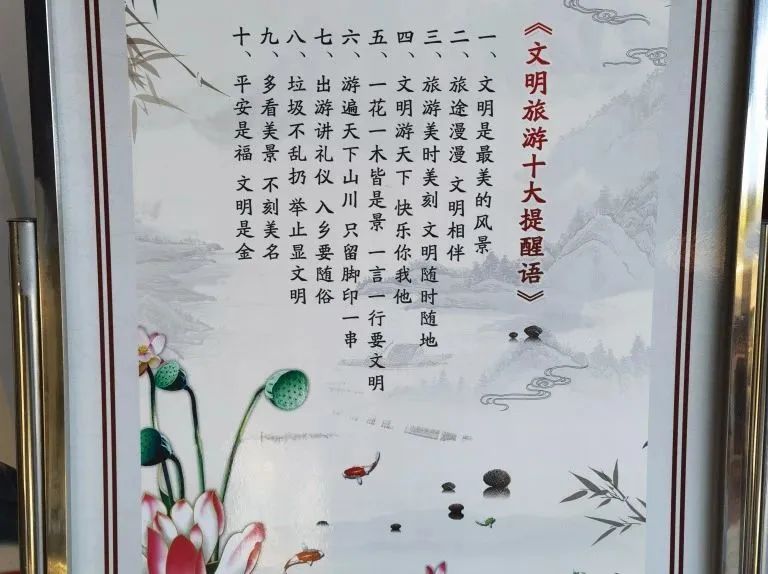 《文明旅游十大提醒语》
一、文明是最美的风景
二、旅途漫漫 文明相伴
三、旅游美时美刻 文明随时随地
四、文明游天下 快乐你我他
五、一花一木皆是景 一言一行要文明
六、游遍天下山川 只留脚印一串
七、出游讲礼仪 入乡要随俗
八、垃圾不乱扔 举止显文明
九、多看美景 不刻美名
十、平安是福 文明是金